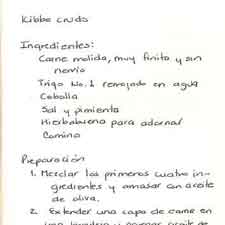 Kibbe crudo
Ingredientes:
Carne molida, muy finita y sin
nervio
Trigo No. 1 remojado en agua
Cebolla
Sal y pimienta
Hierbabuena para adornar
Comino
Preparación
1. Mezclar los primeros cuatro in-
gredientes y amasar con aceite
de oliva.
2. Extender una capa de carne en
una bandeja y poner aceite de